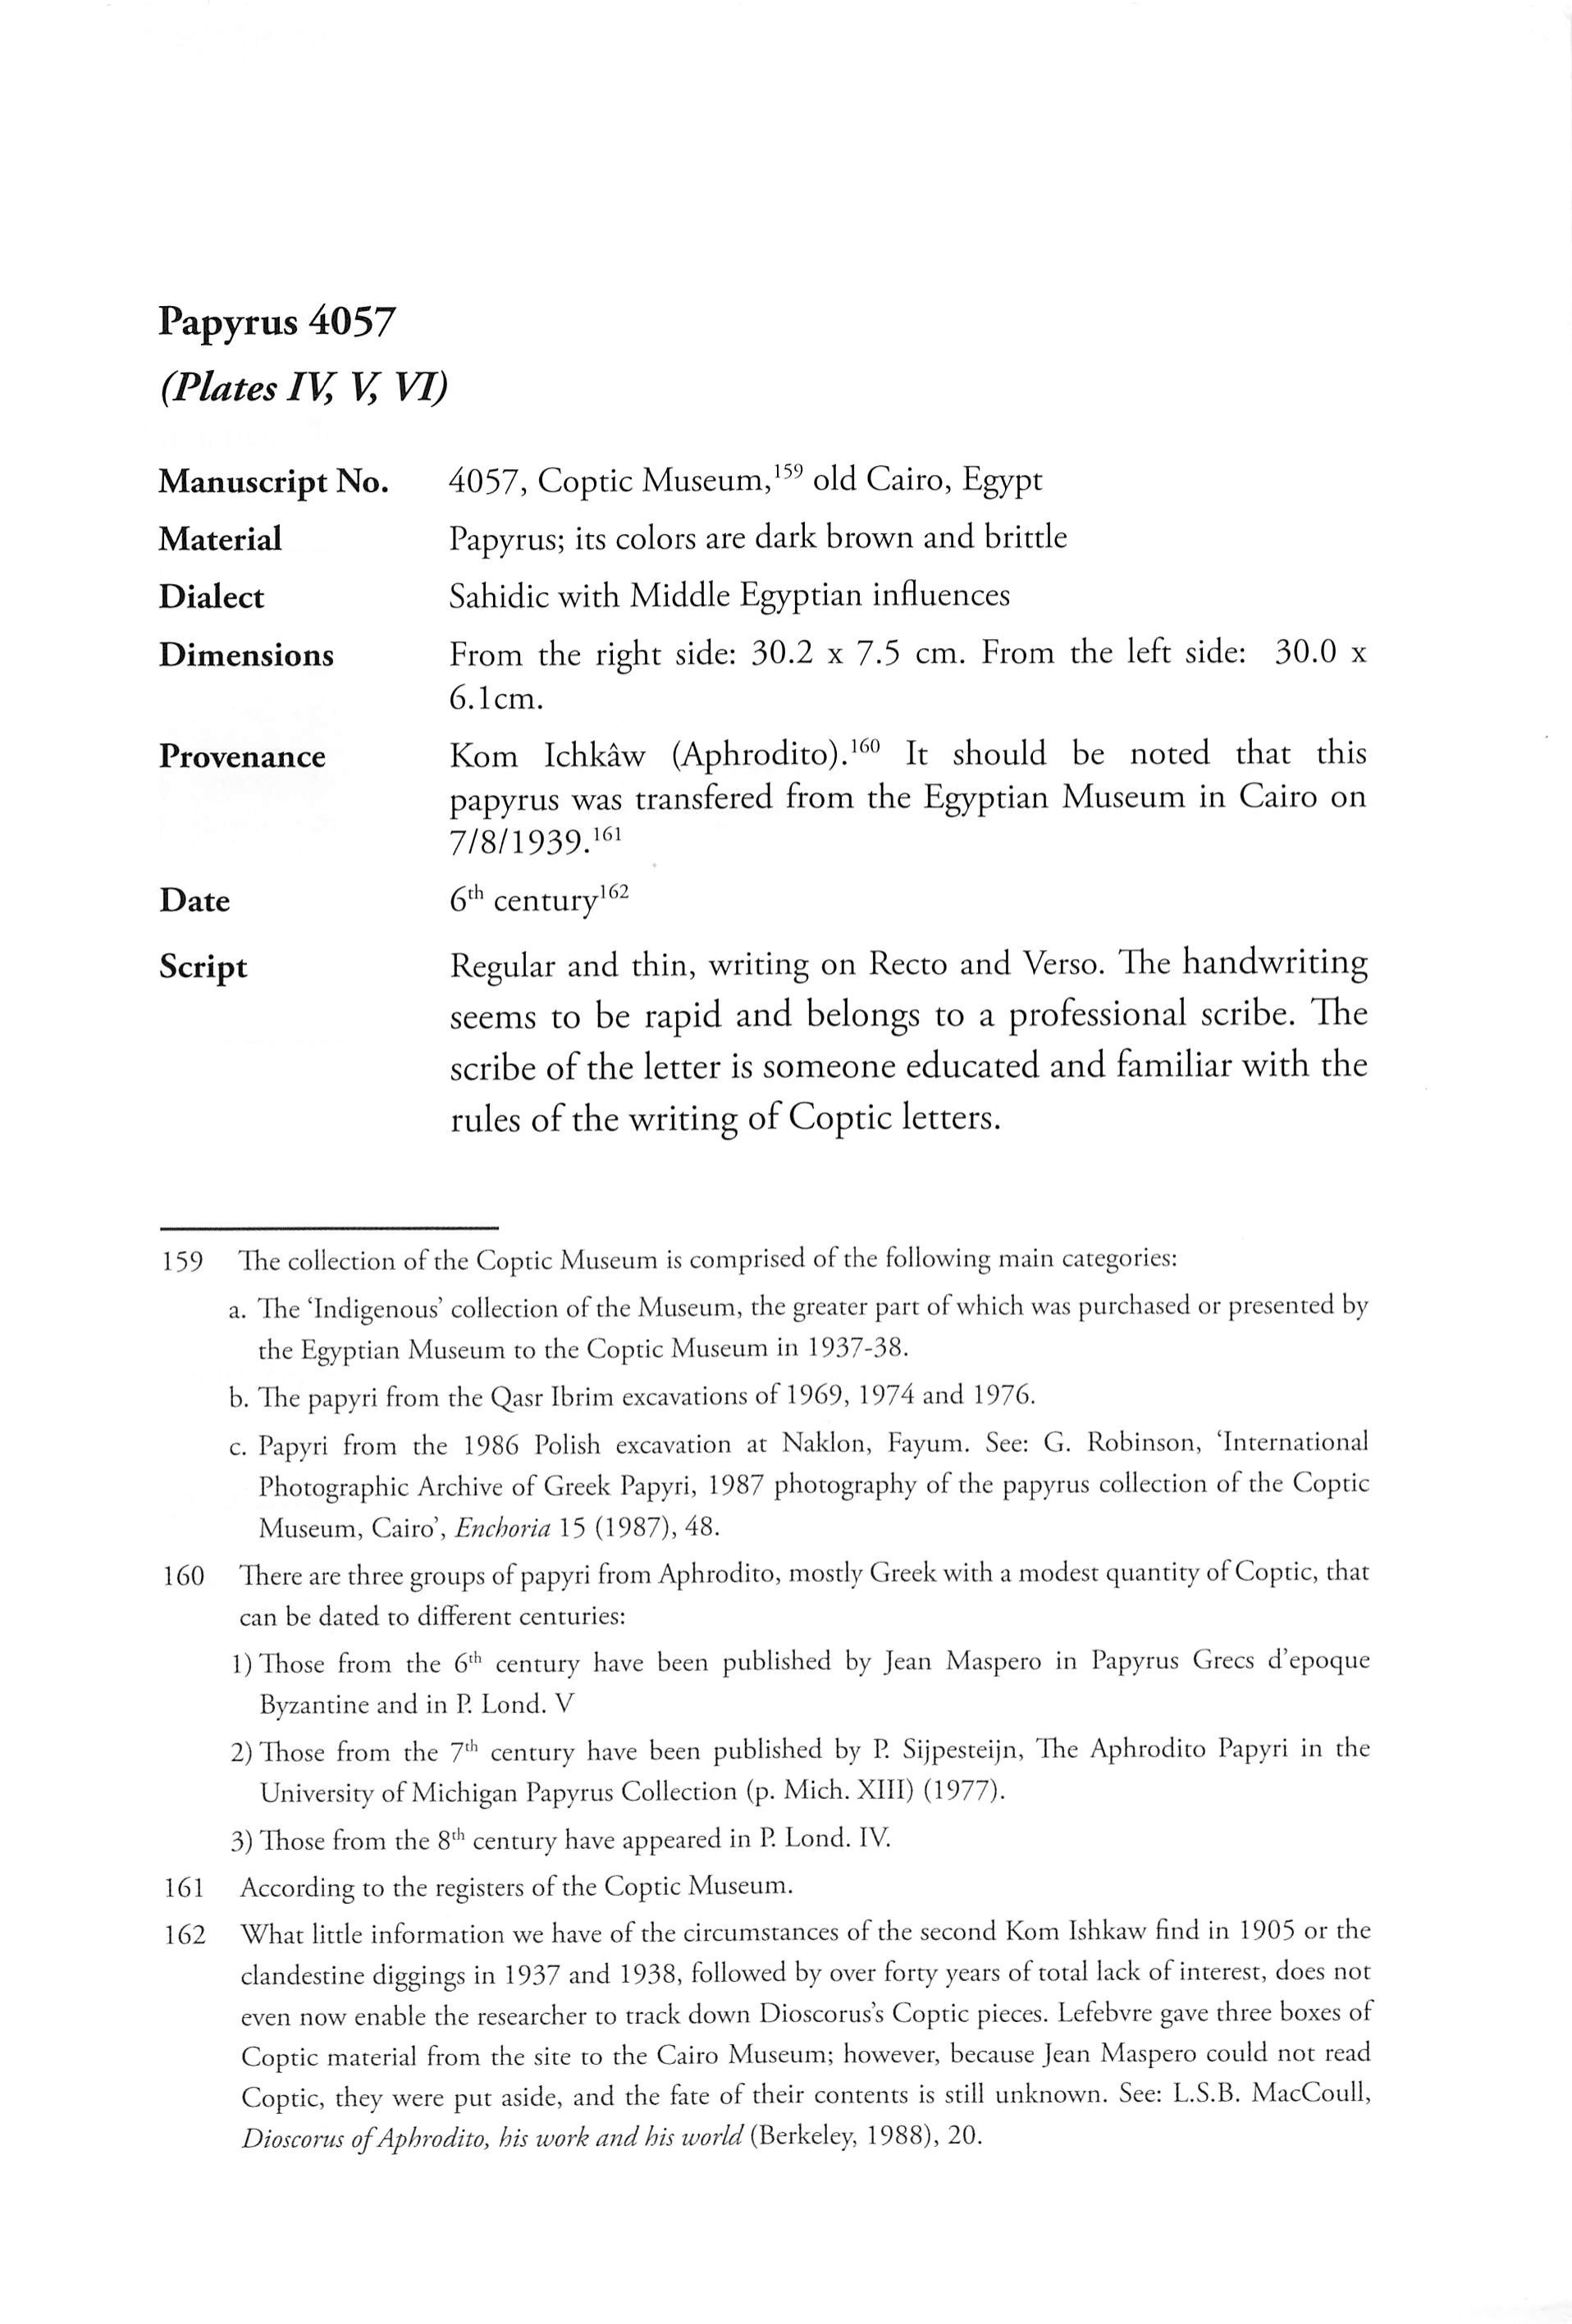 Papyrus 4057
(Plates IV, V, VI)
Manuscript No. 4057, Coptic Museum,159 old Cairo, Egypt
Material Papyrus; its colors are dark brown and brittle
Dialect Sahidic with Middle Egyptian influences
Dimensions From the right side: 30.2 x 7.5 cm. From the left side: 30.0 x
6.1cm.
Provenance Kom Ichkâw (Aphrodito).160 It should be noted that this
papyrus was transfered from the Egyptian Museum in Cairo on
7/8/1939.161
Date 6th century162
Script Regular and thin, writing on Recto and Verso. The handwriting
seems to be rapid and belongs to a professional scribe. The
scribe of the letter is someone educated and familiar with the
rules of the writing of Coptic letters.
159 The collection of the Coptic Museum is comprised of the following main categories:
a. The ‘Indigenous’ collection of the Museum, the greater part of which was purchased or presented by
the Egyptian Museum to the Coptic Museum in 1937-38.
b. The papyri from the Qasr Ibrim excavations of 1969, 1974 and 1976.
c. Papyri from the 1986 Polish excavation at Naklon, Fayum. See: G. Robinson, ‘International
Photographic Archive of Greek Papyri, 1987 photography of the papyrus collection of the Coptic
Museum, Cairo’, Enchoria 15 (1987), 48.
160 There are three groups of papyri from Aphrodito, mostly Greek with a modest quantity of Coptic, that
can be dated to different centuries:
1) Those from the 6th century have been published by Jean Maspero in Papyrus Grecs d’epoque
Byzantine and in P. Lond. V
2) Those from the 7th century have been published by P. Sijpesteijn, The Aphrodito Papyri in the
University of Michigan Papyrus Collection (p. Mich. XIII) (1977).
3) Those from the 8th century have appeared in P. Lond. IV.
161 According to the registers of the Coptic Museum.
162 What little information we have of the circumstances of the second Kom Ishkaw find in 1905 or the
clandestine diggings in 1937 and 1938, followed by over forty years of total lack of interest, does not
even now enable the researcher to track down Dioscorus’s Coptic pieces. Lefebvre gave three boxes of
Coptic material from the site to the Cairo Museum; however, because Jean Maspero could not read
Coptic, they were put aside, and the fate of their contents is still unknown. See: L.S.B. MacCoull,
Dioscorus of Aphrodito, his work and his world (Berkeley, 1988), 20.